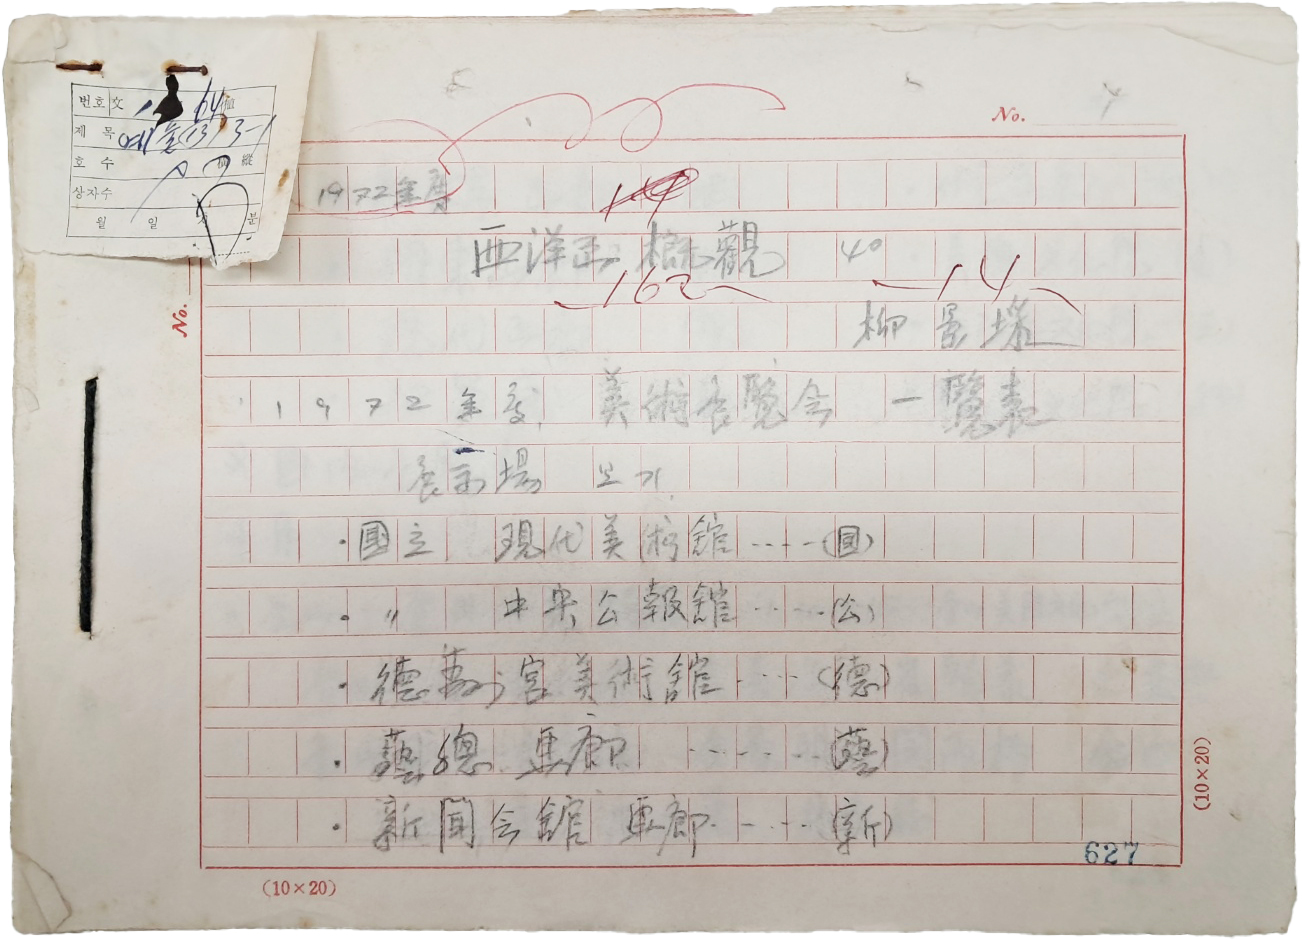 번호 文
제목 예총 (13) 3-1
호수
상자수
월 일 분
No. 4
1972年度
西洋画 概觀 40
162 14
柳景埰
No.
1972年度 美術展覽会 一覽表
展示場 보기
·國立 現代美術館 ----(国)
·〃 中央公報館 ----(公)
·德壽宮美術館 ----(德)
·藝總 画廊 ------(藝)
·新聞会館 画廊 ----(新)
(10×20)
627
(10×20)